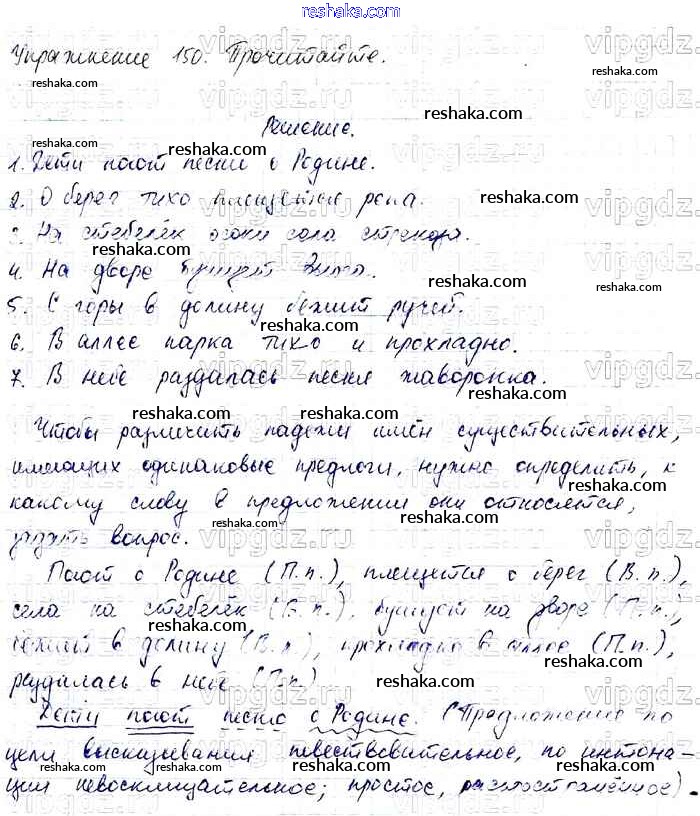 reshaka.com
Упражнение 150. Прочитайте.
Решение.
1. Дети поют песни о Родине.
2. О берег тихо плещется река.
3. На стебелёк осоки села стрекоза.
4. На дворе бушует зима.
5. С горы в долину бежит ручей.
6. В аллее парка тихо и прохладно.
7. В небе раздалась песня жаворонка.
Чтобы различить падежи имён существительных,
имеющих одинаковые предлоги, нужно определить, к
какому слову в предложении они относятся,
задать вопрос.
Поют о Родине (П.п.), плещется о берег (В.п.),
села на стебелёк (В.п.), бушует на дворе (П.п.),
бежит в долину (В.п.), прохладно в аллее (П.п.),
раздалась в небе (П.п.)
Дети поют песню о Родине. (Предложение по
цели высказывания повествовательное, по интона-
ции невосклицательное; простое, распространённое).